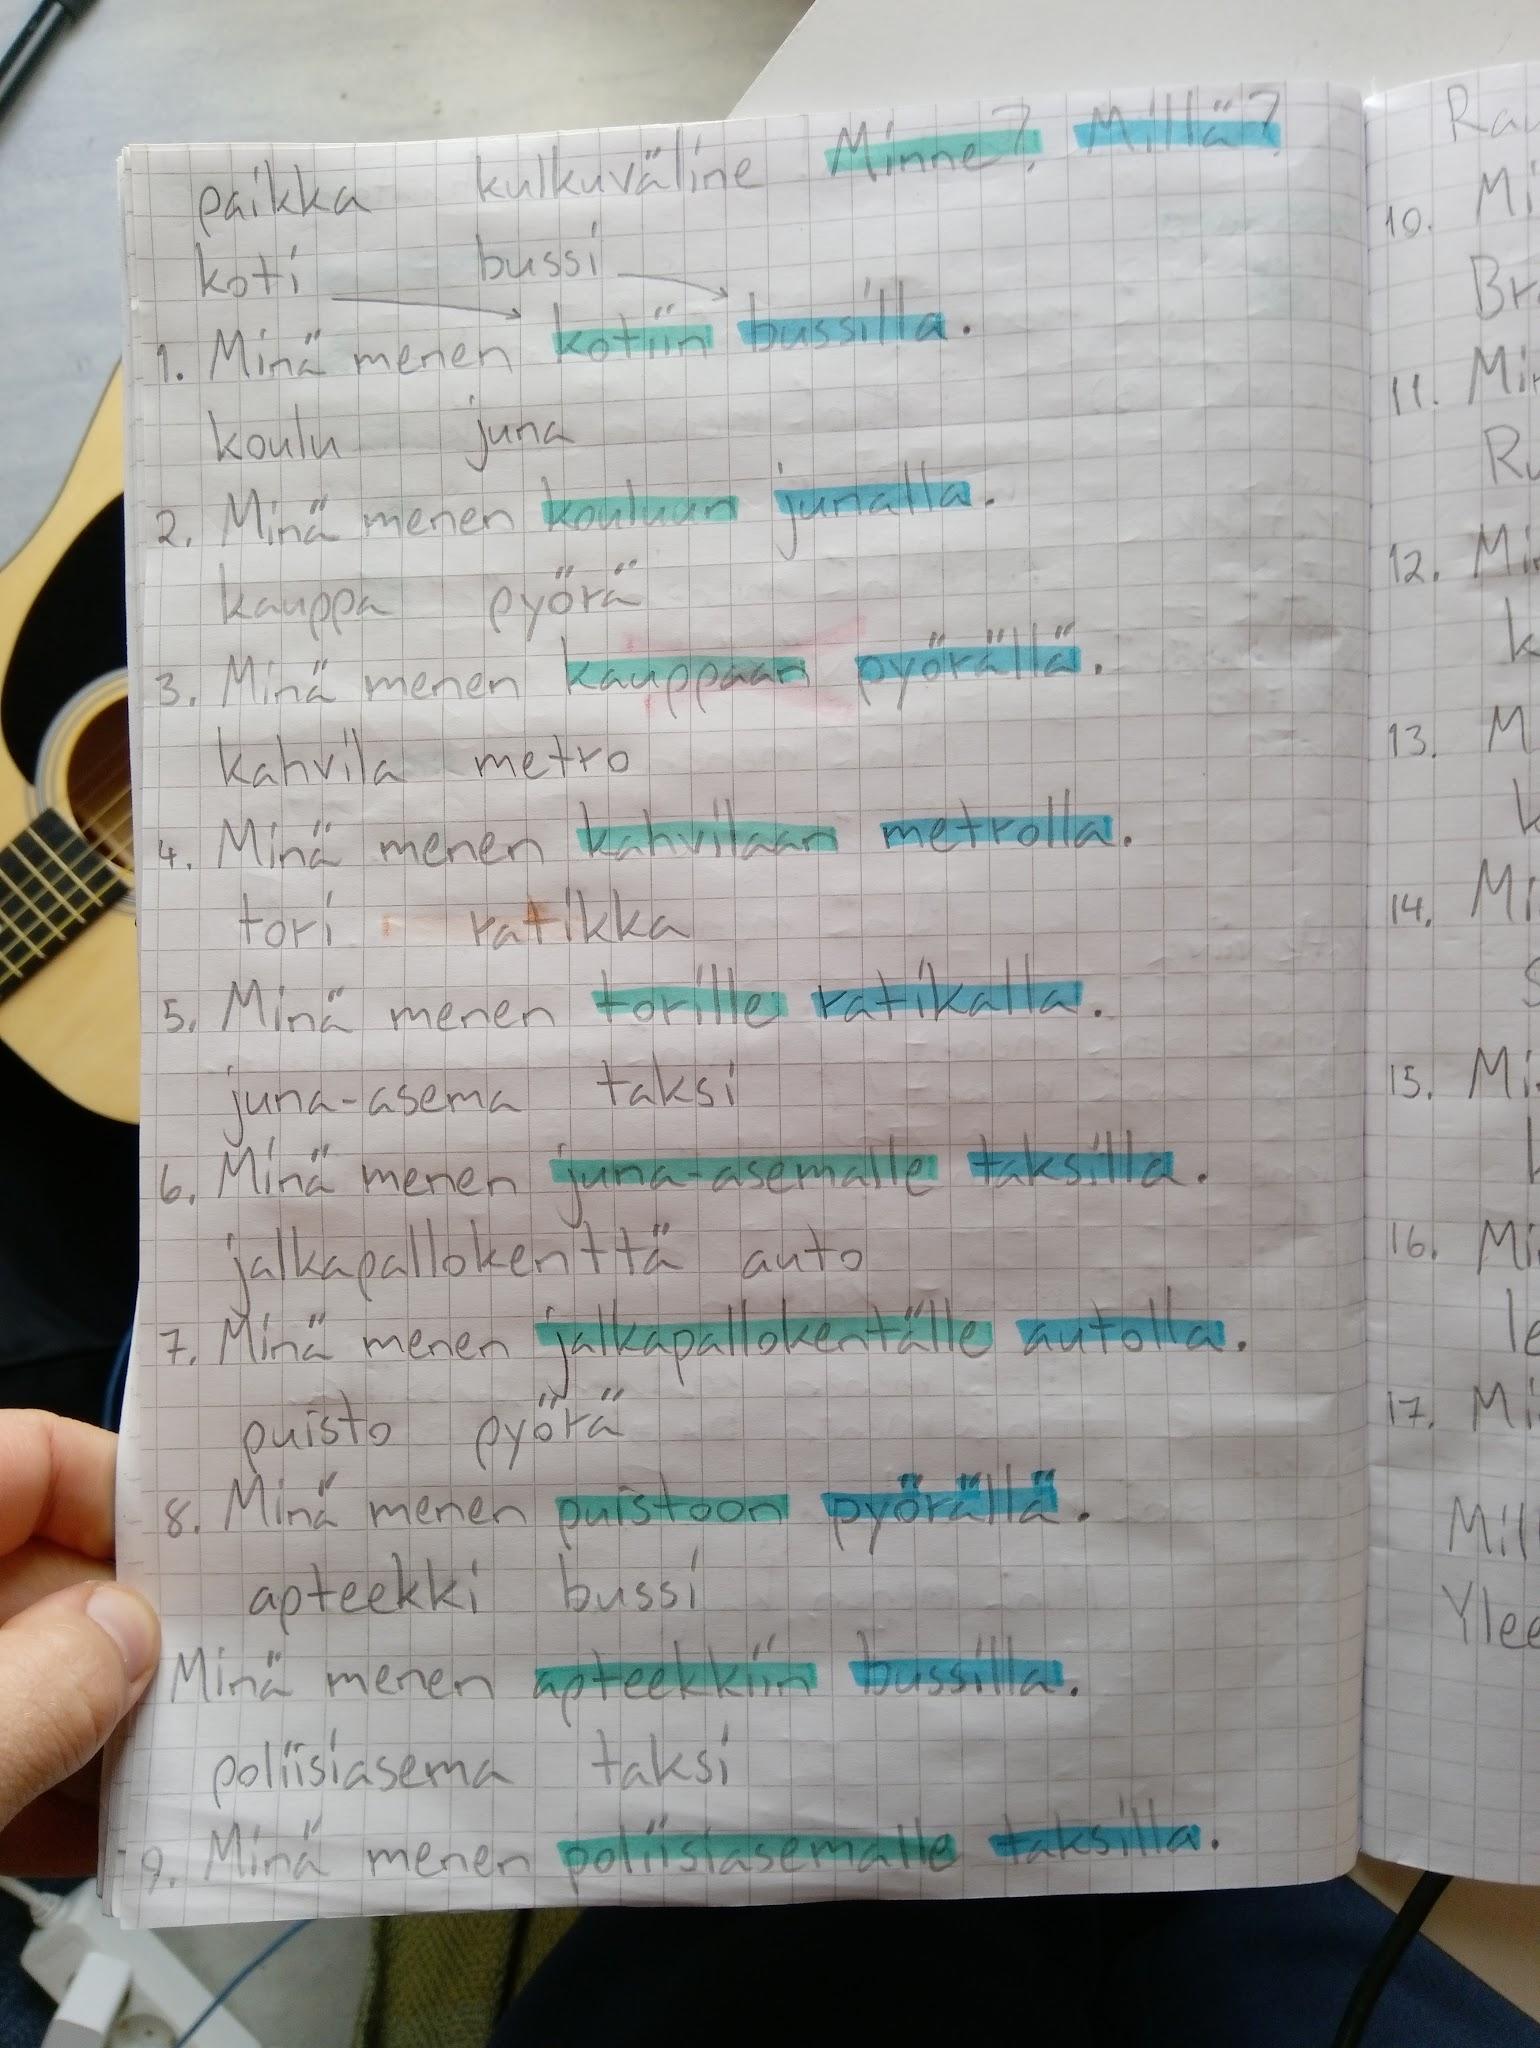 paikka kulkuväline Minne? Millä?
koti bussi
1. Minä menen kotiin bussilla.
koulu juna
2. Minä menen kouluun junalla.
kauppa pyörä
3. Minä menen kauppaan pyörällä.
kahvila metro
4. Minä menen kahvilaan metrolla.
tori ratikka
5. Minä menen torille ratikalla.
juna-asema taksi
6. Minä menen juna-asemalle taksilla.
jalkapallokenttä auto
7. Minä menen jalkapallokentälle autolla.
puisto pyörä
8. Minä menen puistoon pyörällä.
apteekki bussi
Minä menen apteekkiin bussilla.
poliisiasema taksi
9. Minä menen poliisiasemalle taksilla.
10.
11.
12.
13.
14.
15.
16.
17.